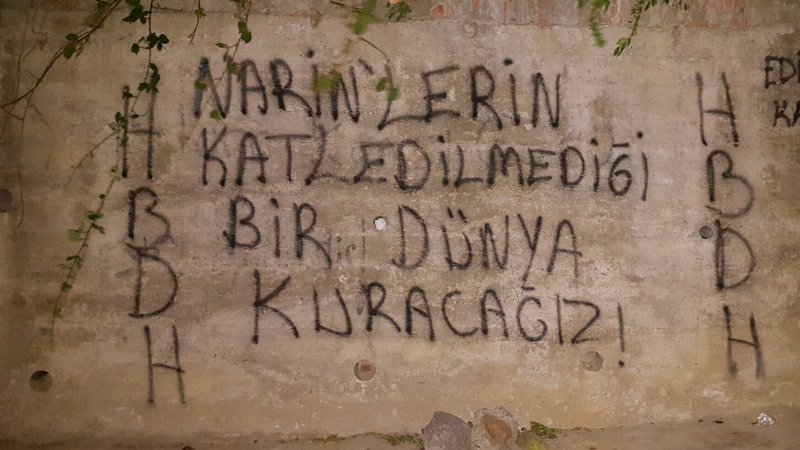 HBDH
NARİN'LERİN
KATLEDİLMEDİĞİ
BİR DÜNYA
KURACAĞIZ!
HBDH